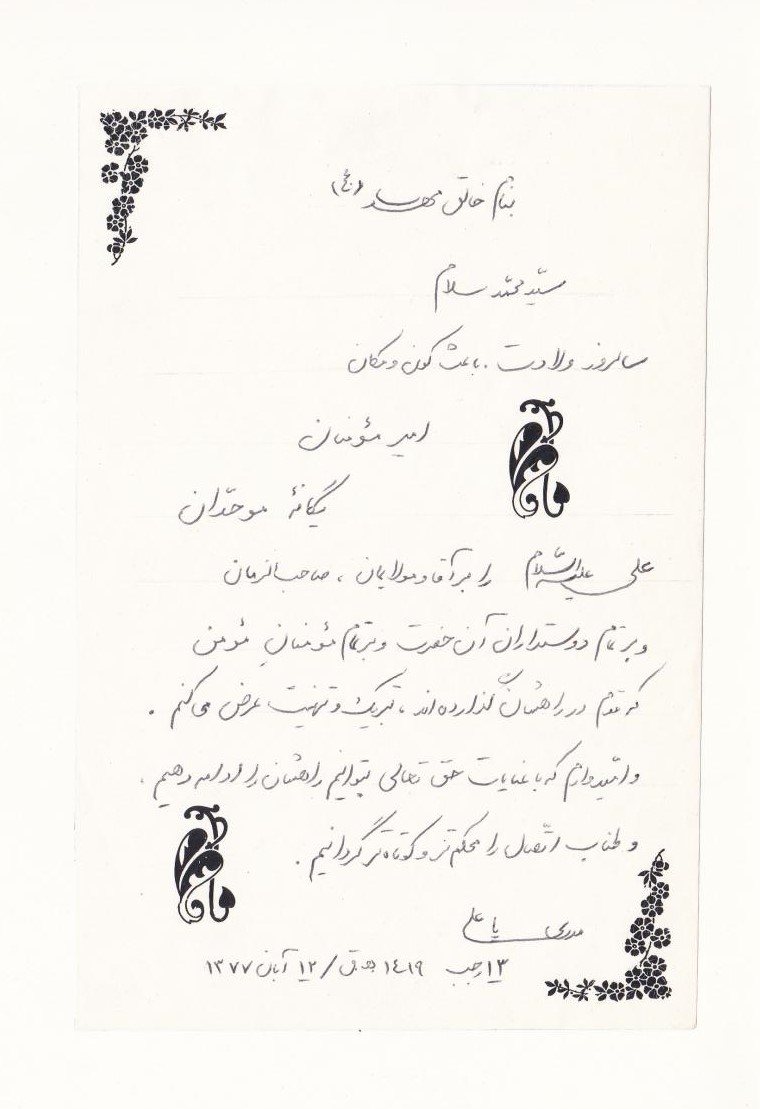 بنام خالق مهدی (عج)
سیّد محمّد سلام
سالروز ولادت، باعث کون و مکان
امیر مؤمنان
یگانهٔ موحّدان
علی علیه السّلام را بر آقا و مولایمان، صاحب الزمان
و بر تمام دوستداران آن حضرت و بر تمام مؤمنانِ مؤمن
که قدم در راهشان گذارده اند، تبریک و تهنیت عرض می کنم.
و امّیدوارم که با عنایات حق تعالی بتوانیم راهشان را ادامه دهیم.
و طناب اتّصال را محکم تر و کوتاه تر گردانیم.
یا علی مددی
۱۳ رجب ۱۴۱۹ ه.ق / ۱۲ آبان ۱۳۷۷